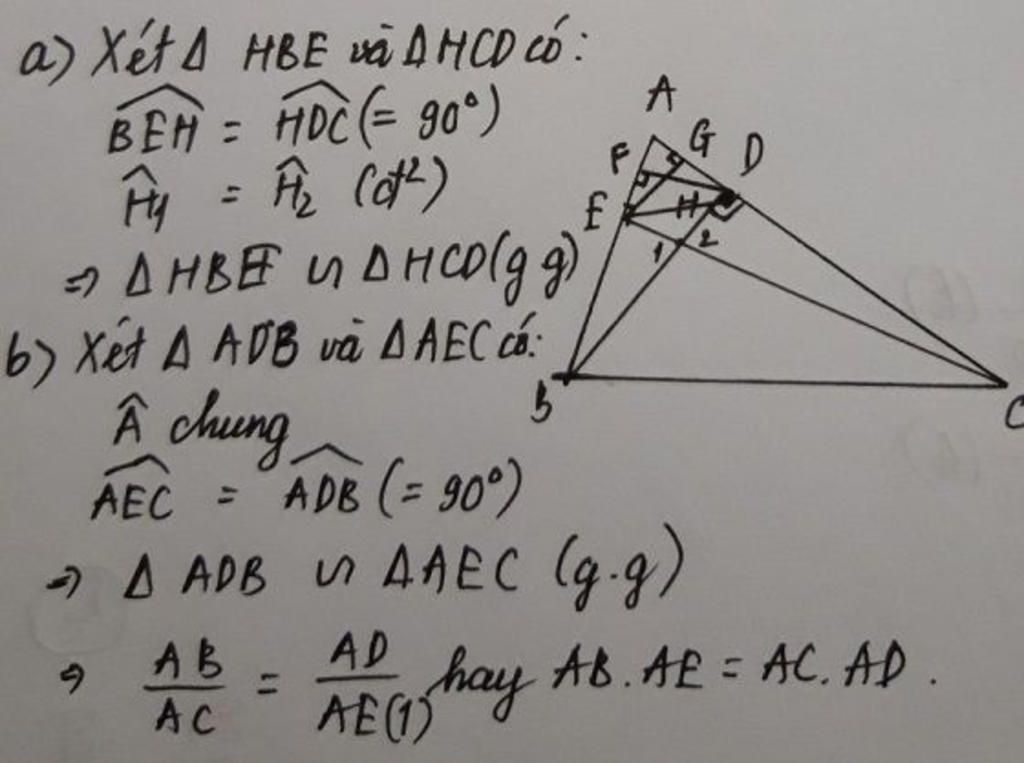 a) Xét Δ HBE và Δ HCD có:
BEH = HDC (= 90°)
Ĥ1 = Ĥ2 (đ²)
=> Δ HBE ᔕ Δ HCD (g g)
b) Xét Δ ADB và Δ AEC có:
Â chung
AEC = ADB (= 90°)
=> Δ ADB ᔕ Δ AEC (g.g)
=> AB/AC = AD/AE (1) hay AB.AE = AC.AD.
A
F G D
E H
1 2
B C